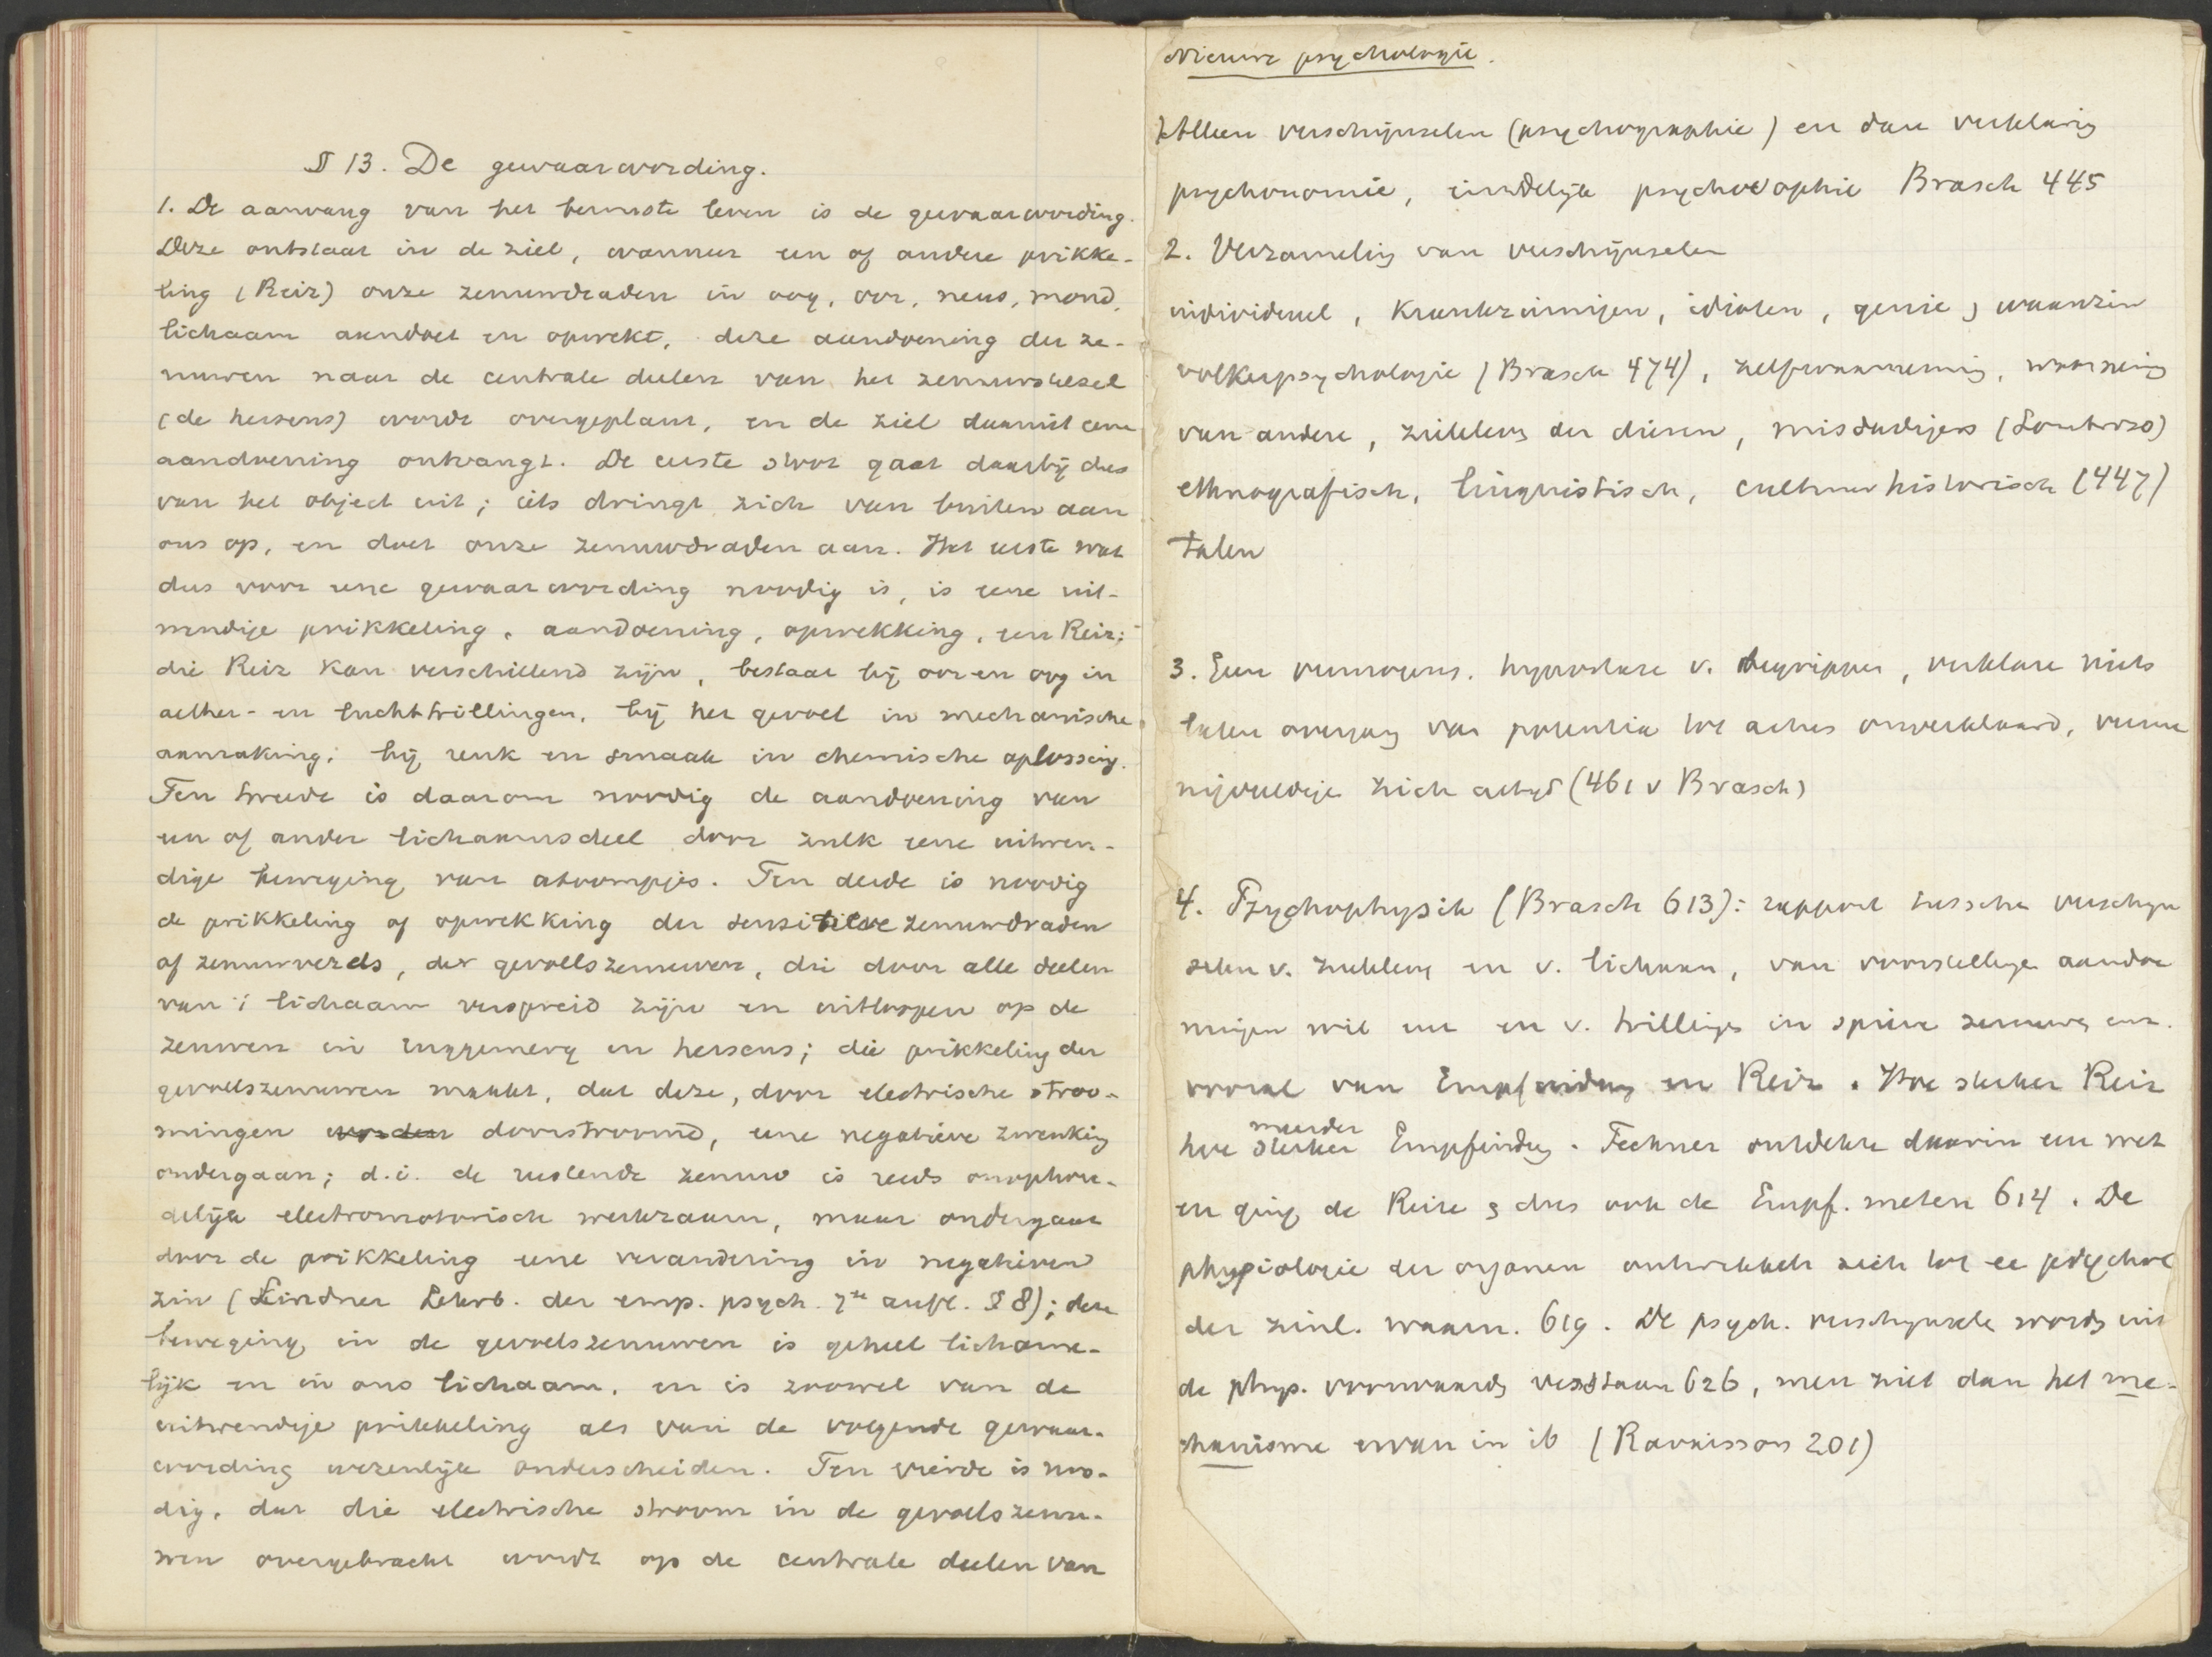 § 13. De gewaarwording.
1. De aanvang van het bewuste leven is de gewaarwording.
Deze ontstaat in de ziel, wanneer een of andere prikke-
ling (Reiz) onze zenuwdraden in oog, oor, neus, mond,
lichaam aandoet en opwekt, deze aandoening der ze-
nuwen naar de centrale deelen van het zenuwstelsel
(de hersens) wordt overgeplant, en de ziel daarmit eene
aandoening ontvangt. De eerste stoot gaat daarbij dus
van het object uit; iets dringt zich van buiten aan
ons op, en doet onze zenuwdraden aan. Het eerste wat
dus voor eene gewaarwording noodig is, is eene uit-
wendige prikkeling, aandoening, opwekking, een Reiz;
die Reiz kan verschillend zijn, bestaat bij oor en oog in
aether- en luchttrillingen, bij het gevoel in mechanische
aanraking; bij reuk en smaak in chemische oplossing.
Ten tweede is daarom noodig de aandoening van
een of ander lichaamsdeel door zulk eene uitwen-
dige beweging van atoompjes. Ten derde is noodig
de prikkeling of opwekking der sensitieve zenuwdraden
of zenuwvezels, der gevoelszenuwen, die door alle deelen
van 't lichaam verspreid zijn en uitloopen op de
zenuwen in ruggemerg en hersens; die prikkeling der
gevoelszenuwen maakt, dat deze, door electrische stroo-
mingen worden doorstroomd, eene negatieve zwenking
ondergaan; d.i. de rustende zenuw is reeds onophou-
delijk electromotorisch werkzaam, maar ondergaat
door de prikkeling eene verandering in negatieven
zin (Lindner Lehrb. der emp. psych. 7te aufl. § 8); deze
beweging in de gevoelszenuwen is geheel lichame-
lijk en in ons lichaam, en is zoowel van de
uitwendige prikkeling als van de volgende gewaar-
wording wezenlijk onderscheiden. Ten vierde is noo-
dig, dat die electrische stroom in de gevoelszenu-
wen overgebracht wordt op de centrale deelen van
Nieuwe psychologie.
Alleen verschijnselen (psychographie) en dan verklaring
psychonomie, eindelijk psychosophie Brasch 445
2. Verzameling van verschijnselen
individueel, krankzinnigen, idioten, genie, waanzin
volkerpsychologie (Brasch 474), zelfwaarneming, waarneming
van andere, zieleleven der dieren, misdadigers (Lombroso)
ethnografisch, linguistisch, cultuurhistorisch (447)
talen
3. Geen vermogens. hypostase v. begrippen, verklare niets
laten overgang van potentia tot actus onverklaard,
(461 v Brasch)
4. Psychophysik (Brasch 613): rapport tusschen verschijn
selen v. zieleleven en v. lichaam, van voorstellingen aandoe
ningen wil enz en v. trillingen in spieren zenuwen enz.
vooral van Empfindung en Reiz. Hoe sterker Reiz
hoe sterker Empfindung. Fechner ontdekte daarin een wet
meerder
en ging de Reize & dus ook de Empf. meten 614. De
physiologie der organen ontwikkelt zich tot ee psychol
der zinl. waarn. 619. De psych. verschijnsele worden uit
de phys. voorwaarden verstaan 626, men ziet dan het me-
chanisme ervan in ib (Ravaisson 201)